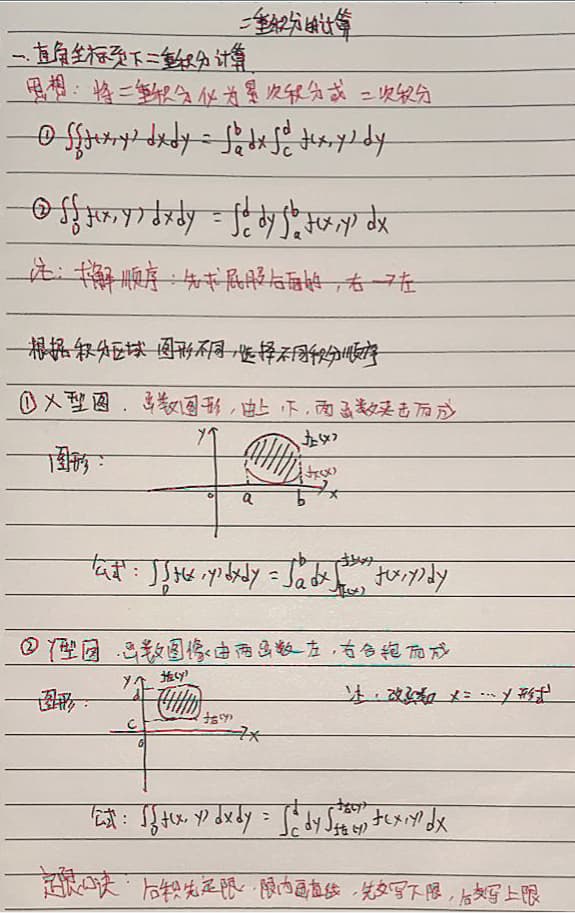 二重积分的计算
一.直角坐标系下二重积分计算
思想：将二重积分化为累次积分或 二次积分
① ∬_D f(x,y) dxdy = ∫_a^b dx ∫_c^d f(x,y) dy
② ∬_D f(x,y) dxdy = ∫_c^d dy ∫_a^b f(x,y) dx
注：求解顺序：先求屁股后面的，右→左
根据积分区域 图形不同，选择不同积分顺序
① X型图．函数图形，由上、下，两函数夹击而成
图形：
y
f上(x)
f下(x)
o a b x
公式：∬_D f(x,y)dxdy = ∫_a^b dx ∫_{f下(x)}^{f上(x)} f(x,y)dy
② Y型图．函数图像由两函数左，右合抱而成
图形：
y
d
c
o
x
注．改函数 x=…y 形式
公式：∬_D f(x,y) dxdy = ∫_c^d dy ∫_{f左(y)}^{f右(y)} f(x,y)dx
定限口诀：后积先定限．限内画直线，先交写下限，后交写上限